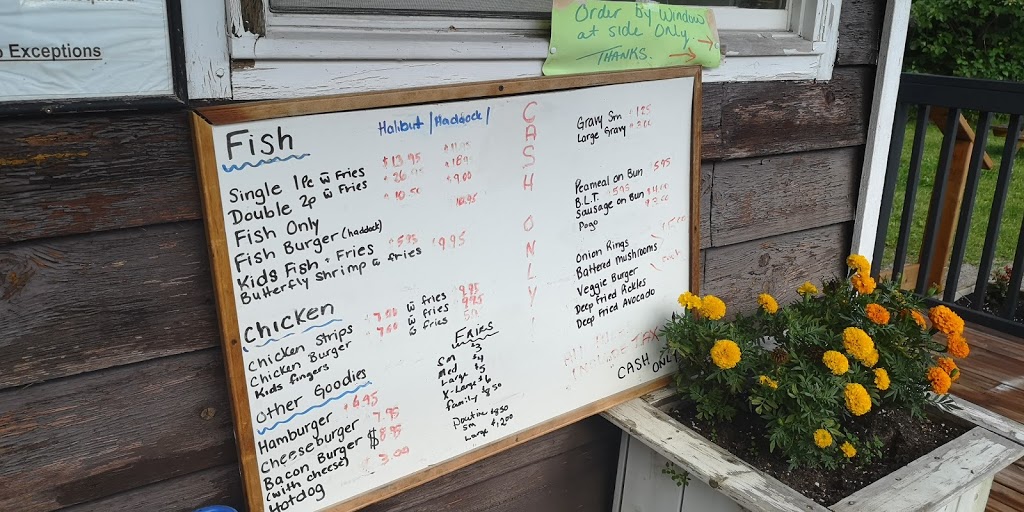 Exceptions
Order by Window
at side ONLY.
THANKS.
Fish Halibut / Haddock /
Single 1pc w Fries $13.95 $11.95
Double 2p w Fries
Fish Only 10.50 9.00
Fish Burger (haddock) 10.95
Kids Fish + Fries 5.95
Butterfly Shrimp w fries 9.95
Chicken
Chicken Strips 7.00 w fries 9.95
Chicken Burger 7.00 w fries 9.95
Kids fingers w fries
Other Goodies
Hamburger 6.95
Cheeseburger 7.95
Bacon Burger $8.95
(with cheese)
Hotdog 3.00
Fries
Sm $3
Med $4
Large $5
X-Large $6
family $8.50
Poutine
Sm $8.50
Large $12.00
CASH ONLY
Gravy Sm $1.25
Large Gravy $2.00
Peameal on Bun 5.95
B.L.T. 5.95
Sausage on Bun $4.00
Pogo $3.00
Onion Rings
Battered mushrooms
Veggie Burger
Deep Fried Pickles
Deep Fried Avocado
TAX
CASH
ONLY